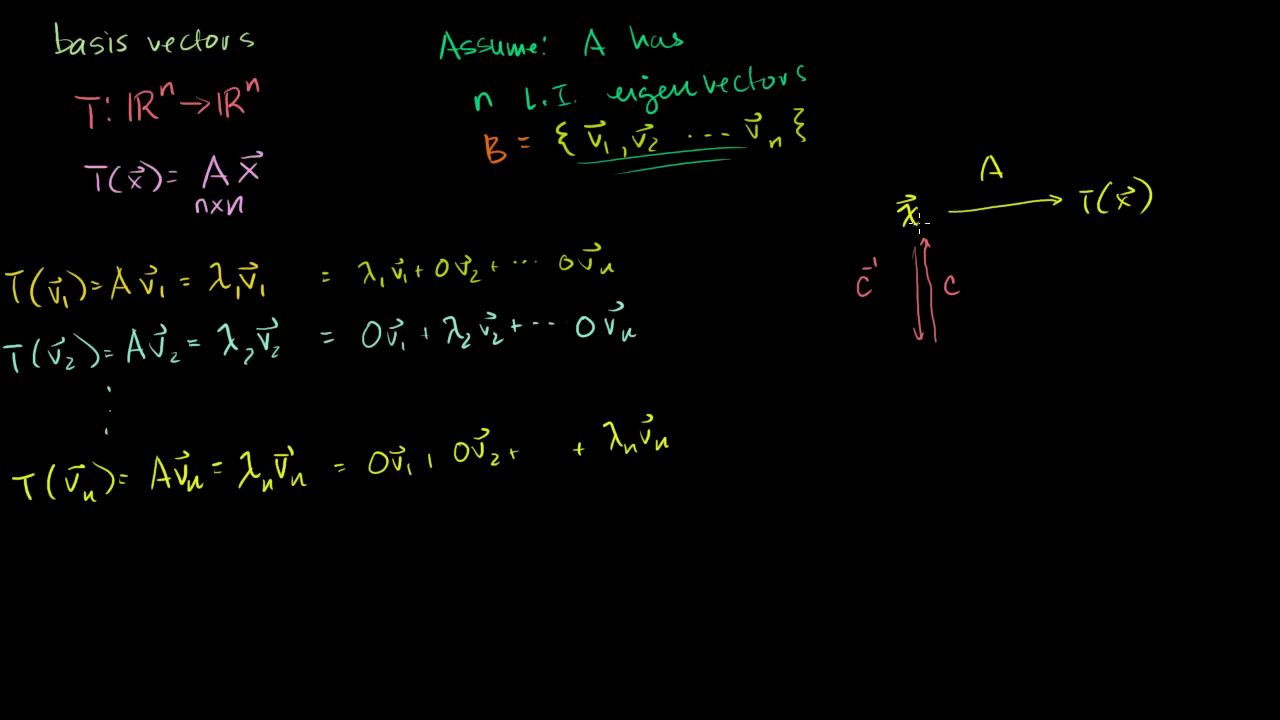 basis vectors
T: ℝⁿ → ℝⁿ
T(x⃗) = A x⃗
n×n
Assume: A has
n L.I. eigenvectors
B = { v⃗₁, v⃗₂ ... v⃗ₙ }
A
x⃗ → T(x⃗)
C⁻¹ C
T(v⃗₁) = A v⃗₁ = λ₁v⃗₁ = λ₁v⃗₁ + 0v⃗₂ + ... 0v⃗ₙ
T(v⃗₂) = A v⃗₂ = λ₂v⃗₂ = 0v⃗₁ + λ₂v⃗₂ + ... 0v⃗ₙ
⋮
T(v⃗ₙ) = A v⃗ₙ = λₙv⃗ₙ = 0v⃗₁ + 0v⃗₂ + + λₙv⃗ₙ